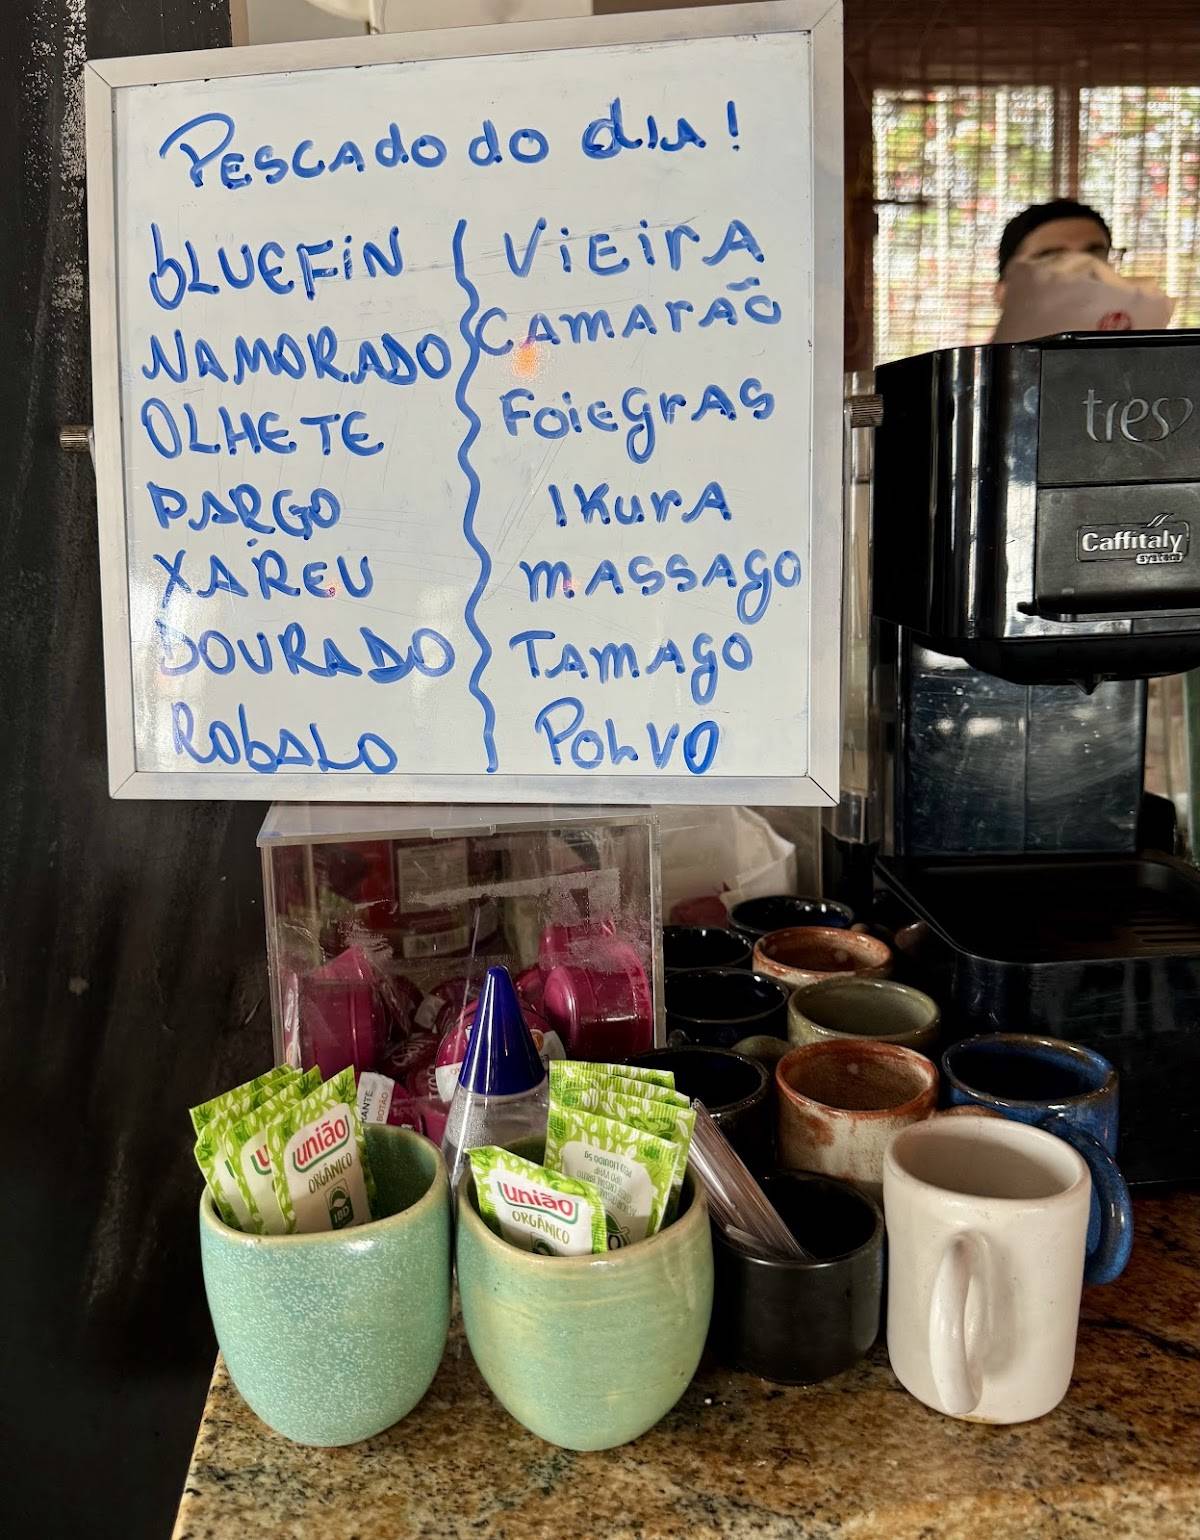 Pescado do dia!
bluefin
Namorado
Olhete
Pargo
Xareu
Dourado
Robalo
Vieira
Camarão
Foiegras
Ikura
Massago
Tamago
Polvo
tres
Caffitaly
system
união
ORGÂNICO
IBD
união
ORGÂNICO